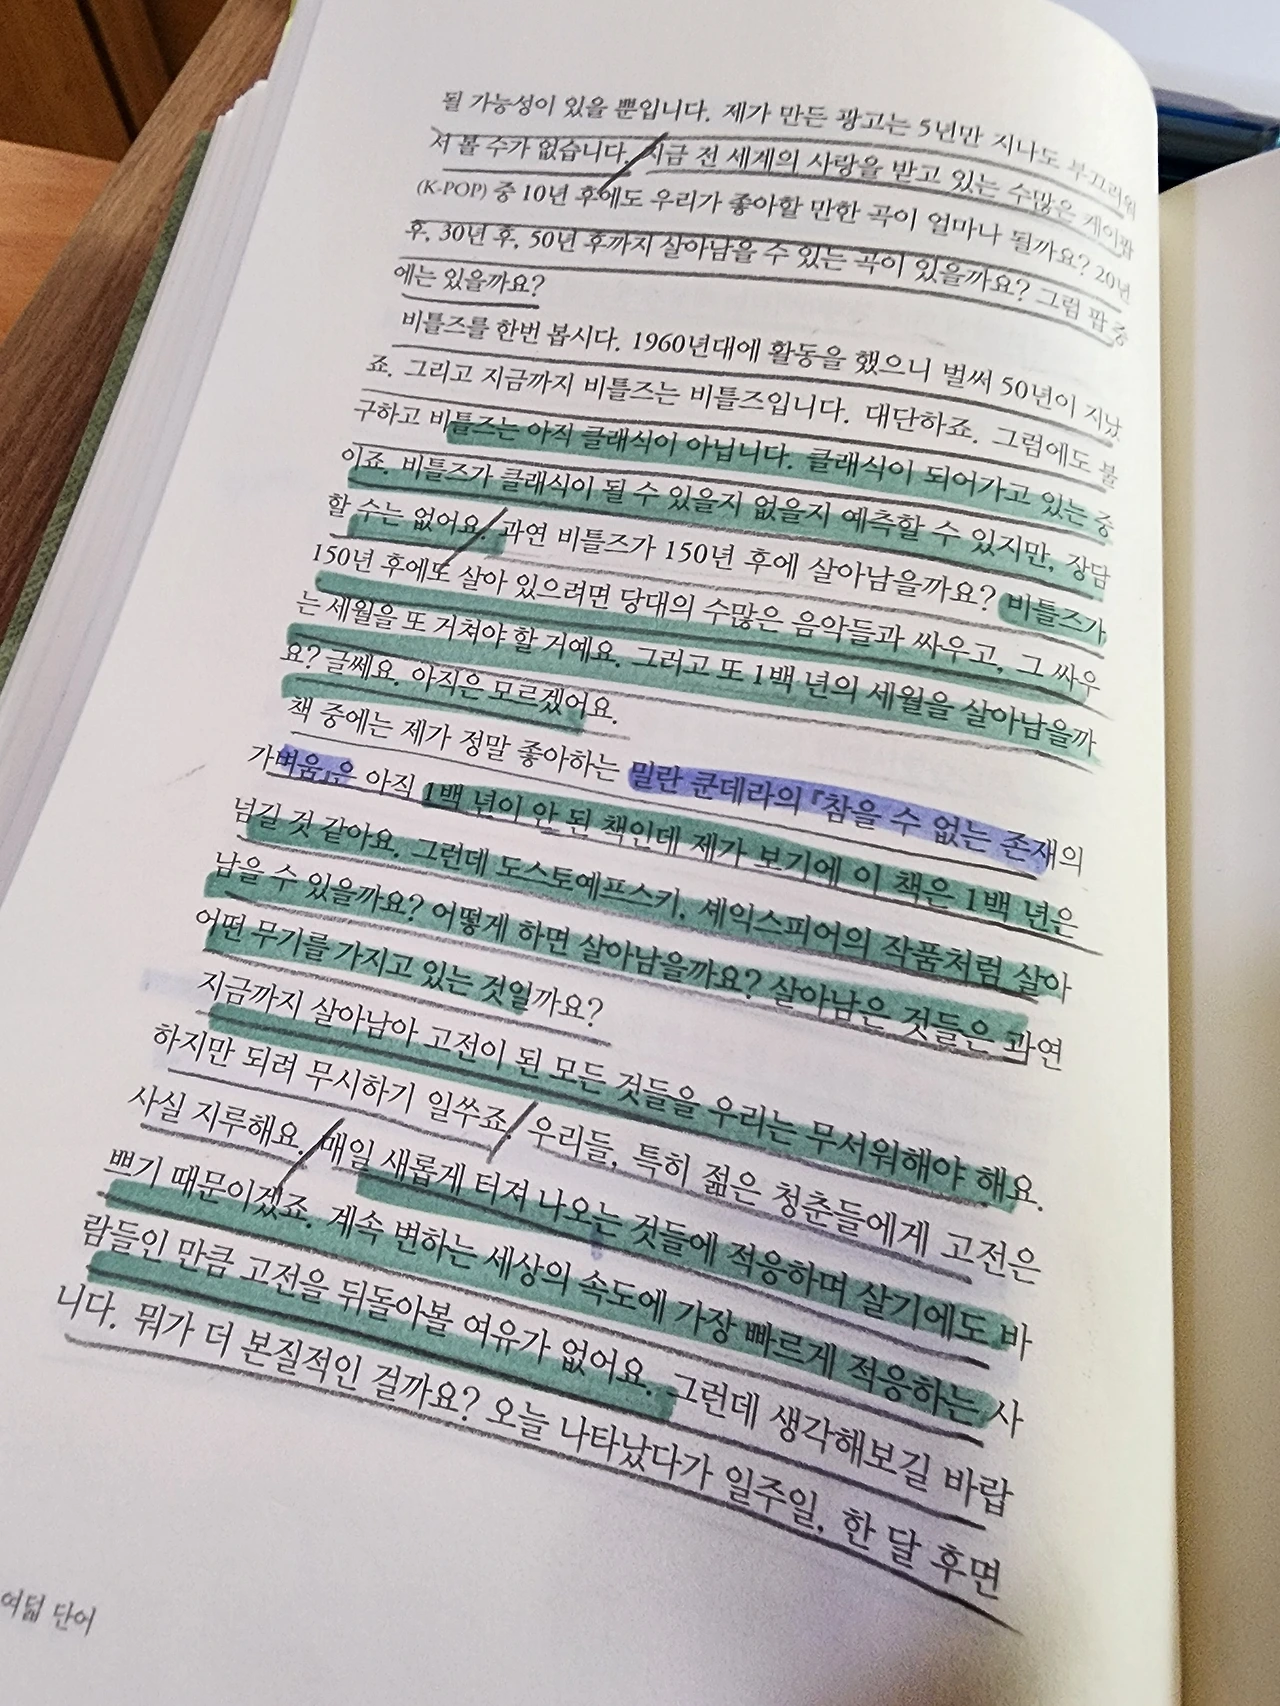 될 가능성이 있을 뿐입니다. 제가 만든 광고는 5년만 지나도 부끄러워
서 볼 수가 없습니다. 지금 전 세계의 사랑을 받고 있는 수많은 케이팝
(K-POP) 중 10년 후에도 우리가 좋아할 만한 곡이 얼마나 될까요? 20년
후, 30년 후, 50년 후까지 살아남을 수 있는 곡이 있을까요? 그럼 팝 중
에는 있을까요?
비틀즈를 한번 봅시다. 1960년대에 활동을 했으니 벌써 50년이 지났
죠. 그리고 지금까지 비틀즈는 비틀즈입니다. 대단하죠. 그럼에도 불
구하고 비틀즈는 아직 클래식이 아닙니다. 클래식이 되어가고 있는 중
이죠. 비틀즈가 클래식이 될 수 있을지 없을지 예측할 수 있지만, 장담
할 수는 없어요. 과연 비틀즈가 150년 후에 살아남을까요? 비틀즈가
150년 후에도 살아 있으려면 당대의 수많은 음악들과 싸우고, 그 싸우
는 세월을 또 거쳐야 할 거예요. 그러고 또 1백 년의 세월을 살아남을까
요? 글쎄요. 아직은 모르겠어요.
책 중에는 제가 정말 좋아하는 밀란 쿤데라의 『참을 수 없는 존재의
가벼움』은 아직 1백 년이 안 된 책인데 제가 보기에 이 책은 1백 년은
넘길 것 같아요. 그런데 도스토예프스키, 셰익스피어의 작품처럼 살아
남을 수 있을까요? 어떻게 하면 살아남을까요? 살아남은 것들은 과연
어떤 무기를 가지고 있는 것일까요?
지금까지 살아남아 고전이 된 모든 것들을 우리는 무서워해야 해요.
하지만 되려 무시하기 일쑤죠. 우리들, 특히 젊은 청춘들에게 고전은
사실 지루해요. 매일 새롭게 터져 나오는 것들에 적응하며 살기에도 바
쁘기 때문이겠죠. 계속 변하는 세상의 속도에 가장 빠르게 적응하는 사
람들인 만큼 고전을 뒤돌아볼 여유가 없어요. 그런데 생각해보길 바랍
니다. 뭐가 더 본질적인 걸까요? 오늘 나타났다가 일주일, 한 달 후면
여덟 단어